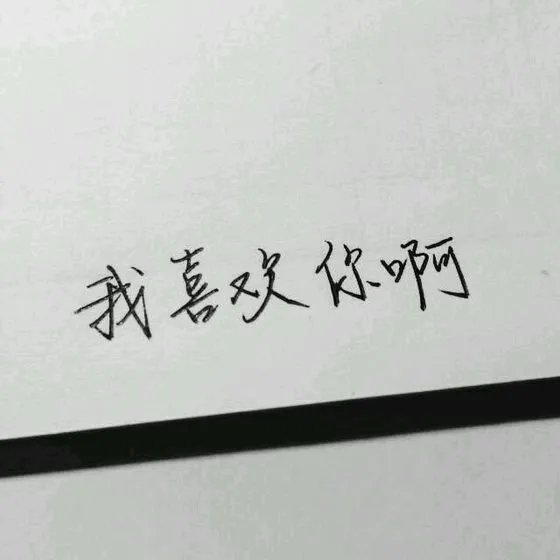 我喜欢你啊